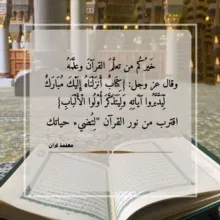 خَيْرُكُم من تعلَّمَ القرآنَ وعلَّمَهُ
وقال عز وجل: {كِتَابٌ أَنزَلْنَاهُ إِلَيْكَ مُبَارَكٌ
لِّيَدَّبَّرُوا آيَاتِهِ وَلِيَتَذَكَّرَ أُولُوا الْأَلْبَابِ}
اقترب من نور القرآن "لِتُضيء حياتك
معلمة قرآن